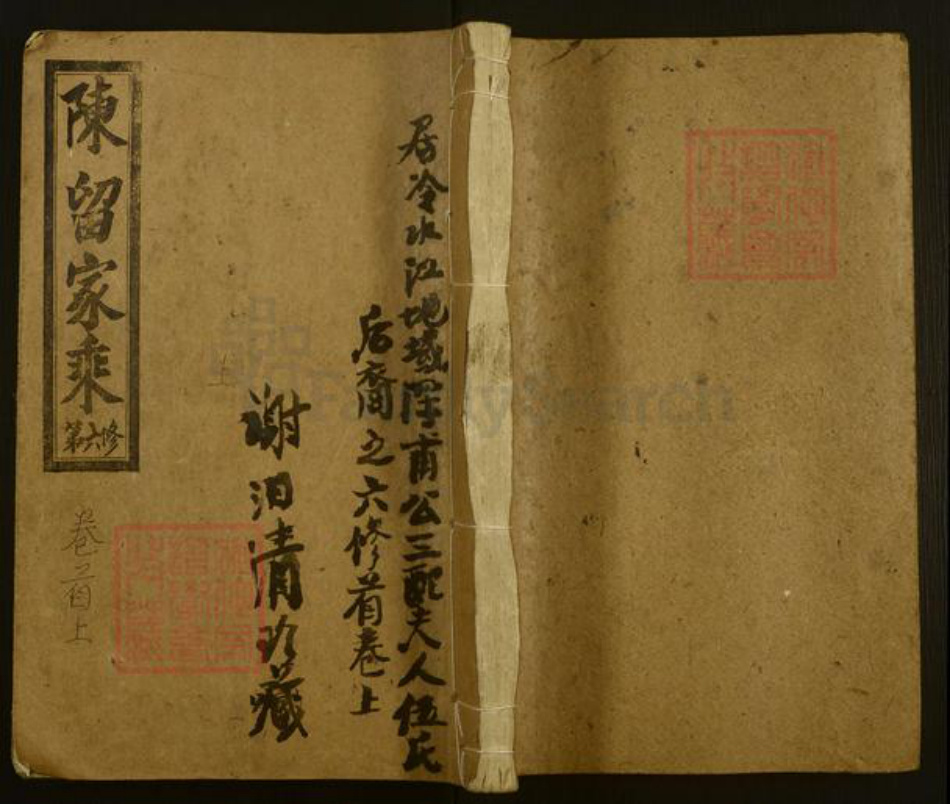 居冷水江地域浑甫公三配夫人伍氏
后裔之六修首卷上
谢泪清珍藏
陳留家乘
第六修
卷首上
FamilySearch